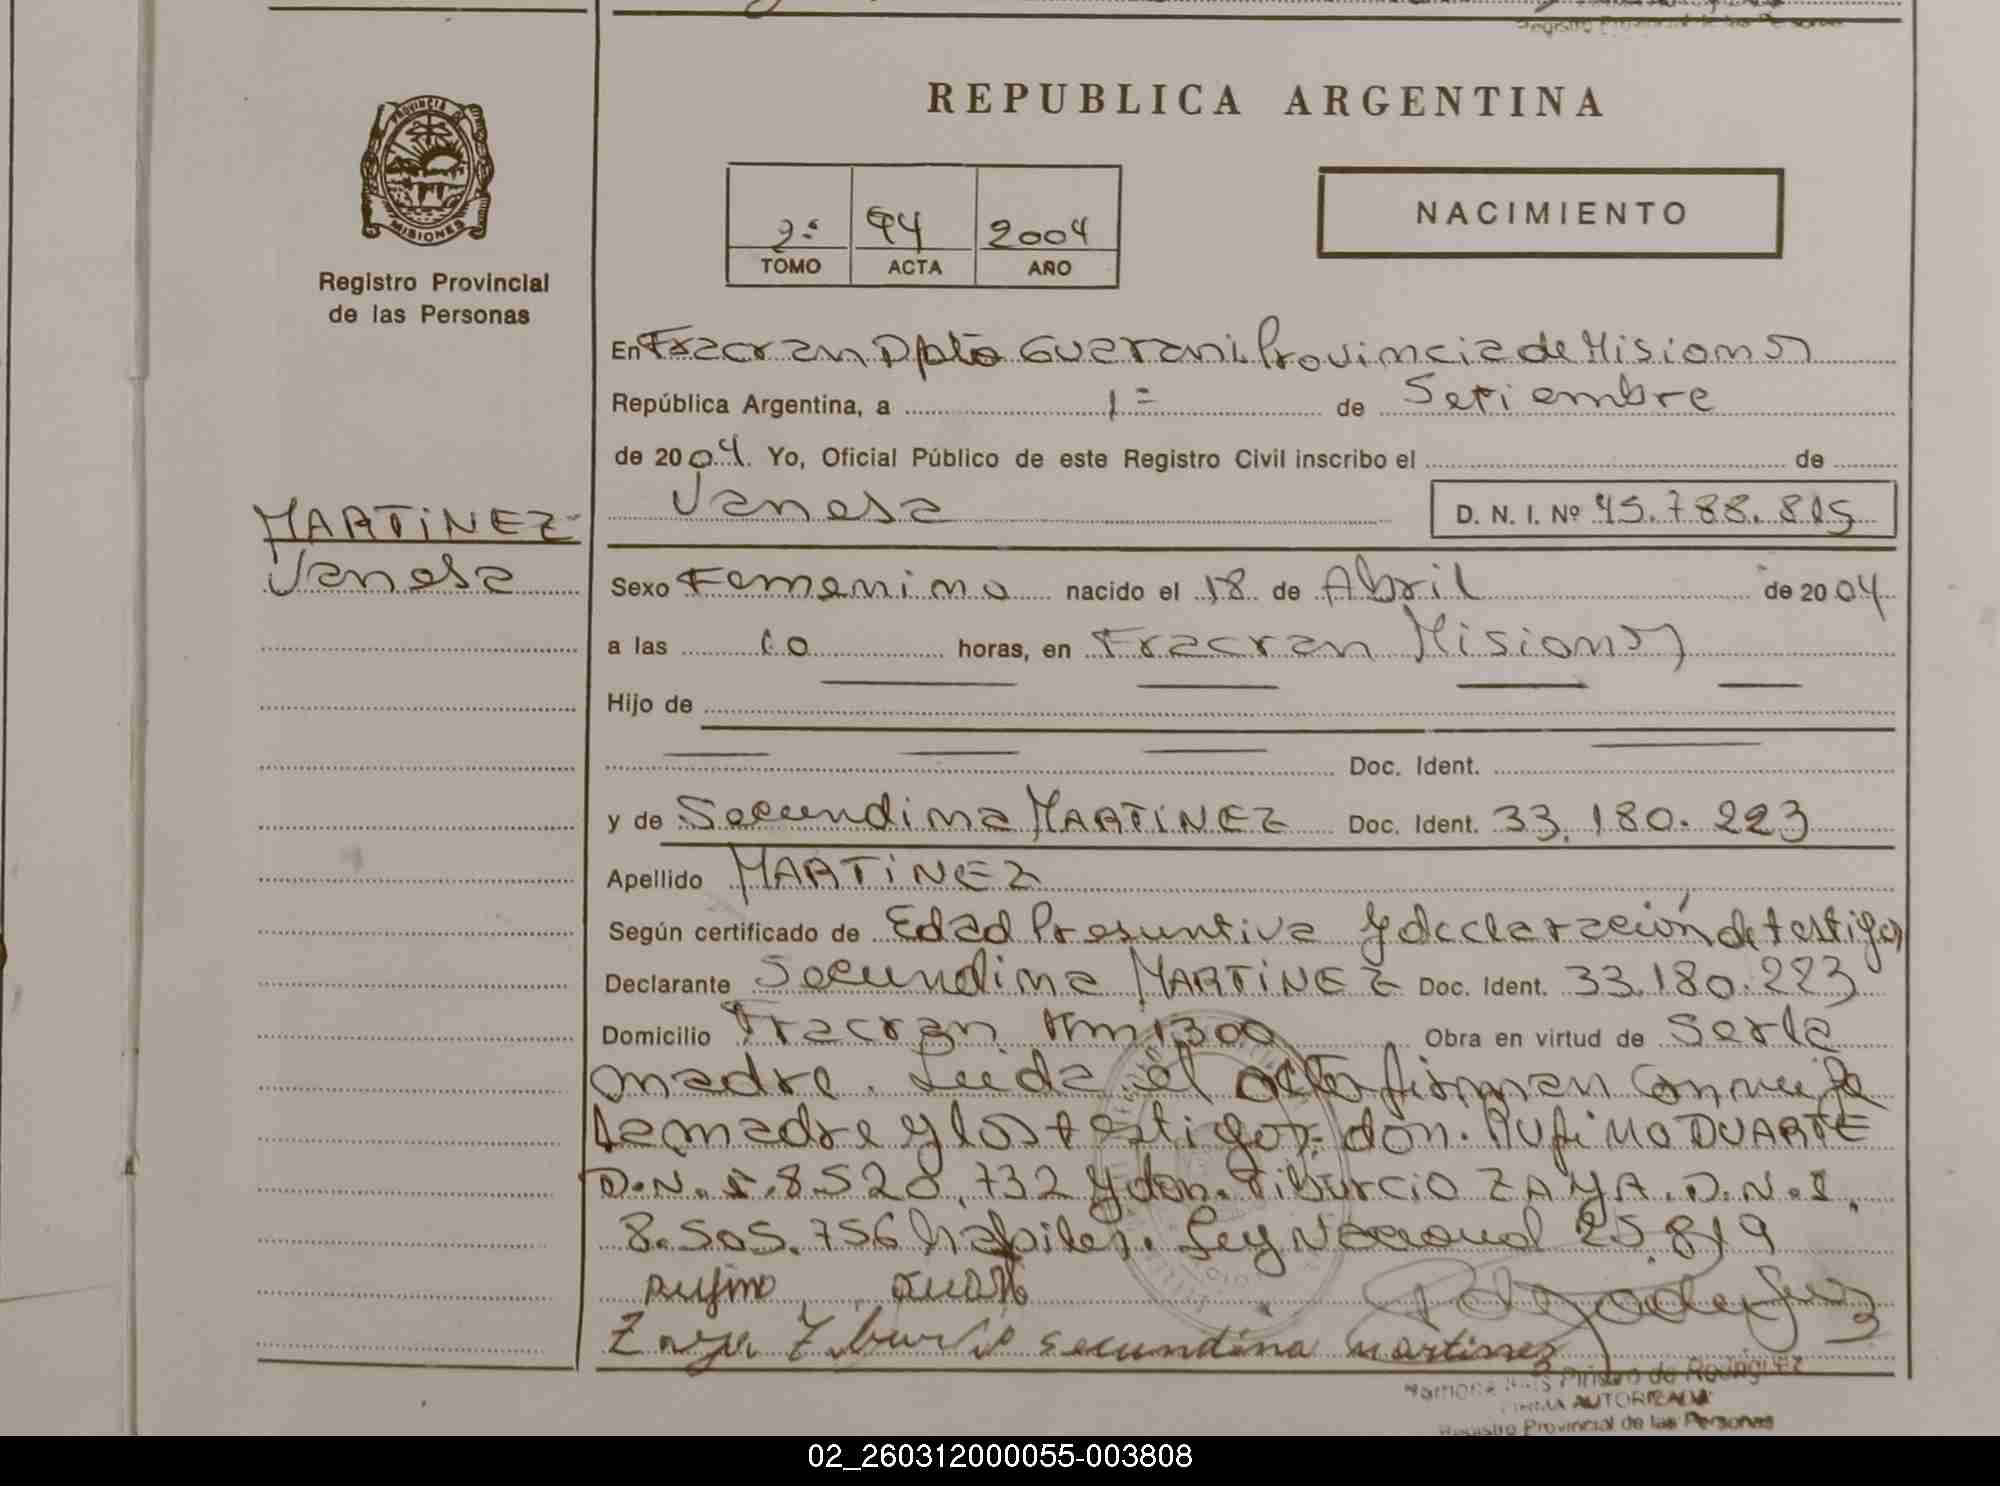 REPUBLICA ARGENTINA
PROVINCIA DE
MISIONES
Registro Provincial
de las Personas
2º 94 2004
TOMO ACTA AÑO
NACIMIENTO
En Fracran Dpto Guarani Provincia de Misiones
República Argentina, a 1º de Setiembre
de 2004. Yo, Oficial Público de este Registro Civil inscribo el de
Vanesa D. N. I. Nº 45.788.815
MARTiNEZ
Vanesa
Sexo Femenino nacido el 18 de Abril de 2004
a las 10 horas, en Fracran Misiones
Hijo de
Doc. Ident.
y de Secundina MARTiNEZ Doc. Ident. 33.180.223
Apellido MARTiNEZ
Según certificado de Edad Presuntiva y declaración de testigos
Declarante Secundina MARTiNEZ Doc. Ident. 33.180.223
Domicilio Fracran Km 1300 Obra en virtud de Ser la
madre. Leida el acta firman conmigo
la madre y los testigos. don. Rufino DUARTE
D.N.I. 8.528.732 y don. Tiburcio ZAYA. D.N.I.
8.505.756 habiles. Ley Nacional 25.819
Rufino
Zaya Tiburcio secundina martines
de Rodriguez
FIRMA AUTORIZADA
Registro Provincial de las Personas
02_260312000055-003808